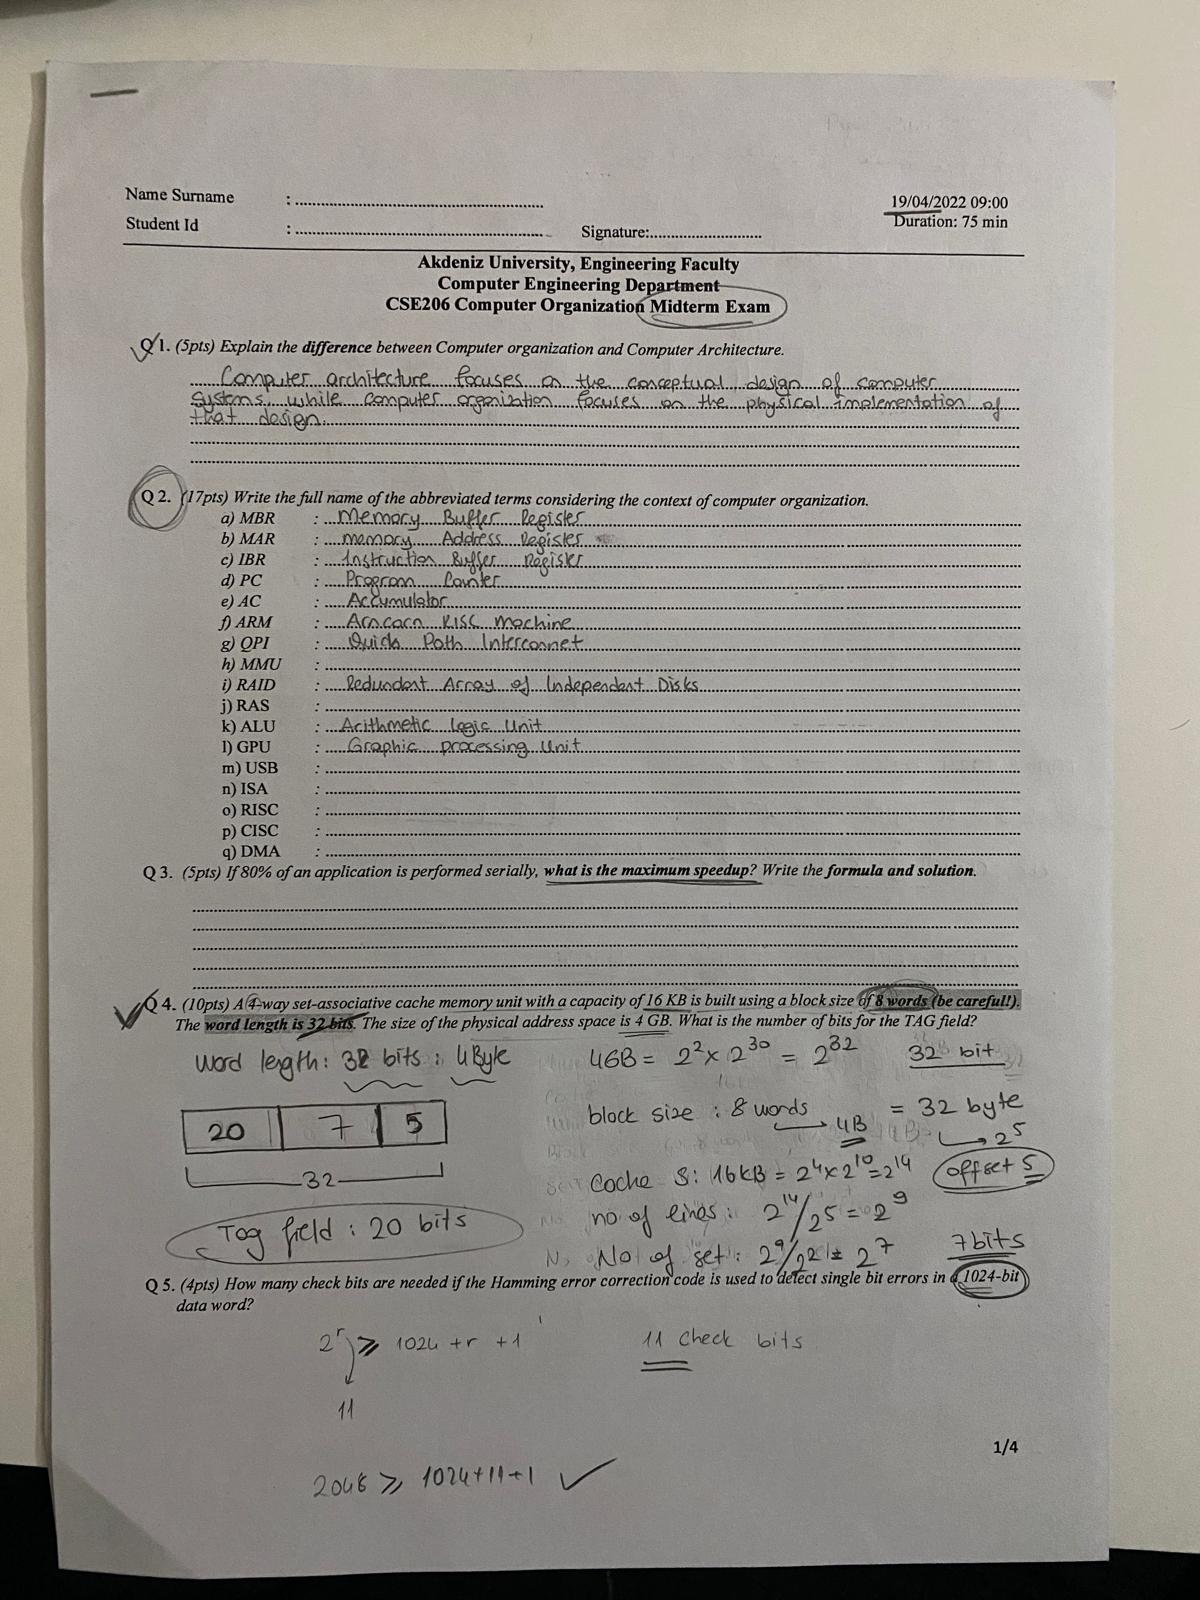 Name Surname : ..........
19/04/2022 09:00
Student Id : .......... Signature:..........
Duration: 75 min
Akdeniz University, Engineering Faculty
Computer Engineering Department
CSE206 Computer Organization Midterm Exam
Q 1. (5pts) Explain the difference between Computer organization and Computer Architecture.
Computer architecture focuses on the conceptual design of computer
systems, while computer organization focuses on the physical implementation of
that design.
Q 2. (17pts) Write the full name of the abbreviated terms considering the context of computer organization.
a) MBR : Memory Buffer Register
b) MAR : memory Address Register
c) IBR : Instruction Buffer Register
d) PC : Program Counter
e) AC : Accumulator
f) ARM : RISC machine
g) QPI : Path Interconnet
h) MMU :
i) RAID : Redundant Array of Independent Disks
j) RAS :
k) ALU : Arithmetic logic Unit
l) GPU : Graphic processing Unit
m) USB :
n) ISA :
o) RISC :
p) CISC :
q) DMA :
Q 3. (5pts) If 80% of an application is performed serially, what is the maximum speedup? Write the formula and solution.
Q 4. (10pts) A 4-way set-associative cache memory unit with a capacity of 16 KB is built using a block size of 8 words (be careful!).
The word length is 32 bits. The size of the physical address space is 4 GB. What is the number of bits for the TAG field?
Word length: 32 bits : 4Byte
4GB = 2² x 2³⁰ = 2³² 32 bit
20 7 5
block size : 8 words = 32 byte
4B 2⁵
32
Cache S: 16kB = 2⁴x2¹⁰=2¹⁴ offset 5
no of lines: 2¹⁴/2⁵ = 2⁹
Tag field : 20 bits
No of set : 2⁹/2² = 2⁷ 7bits
Q 5. (4pts) How many check bits are needed if the Hamming error correction code is used to detect single bit errors in a 1024-bit
data word?
2ʳ ≥ 1024 + r + 1 11 check bits
11
1/4
2048 ≥ 1024+11+1 ✓